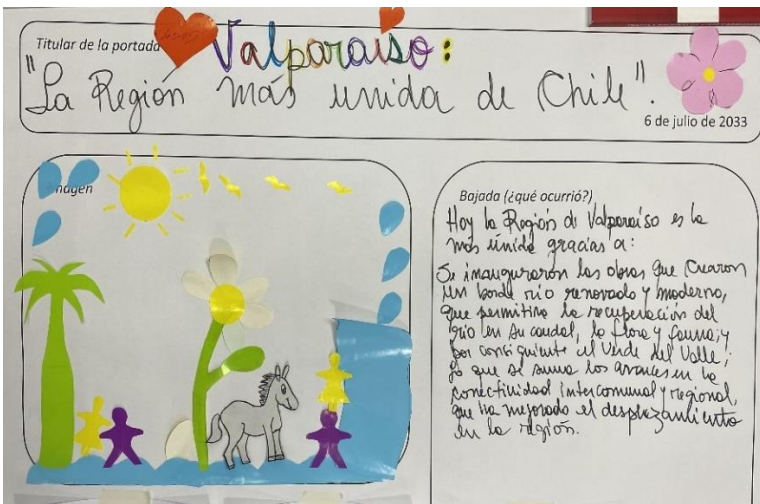 Titular de la portada
Valparaíso:
"La Región más unida de Chile".
6 de julio de 2033
Imagen
Bajada (¿qué ocurrió?)
Hoy la Región de Valparaíso es la
más unida gracias a:
Se inauguraron las obras que crearon
un borde río renovado y moderno,
que permitirá la recuperación del
río en su caudal, la flora y fauna; y
por consiguiente el Verde del Valle;
lo que se suma los avances en la
conectividad intercomunal y regional,
que ha mejorado el desplazamiento
en la región.